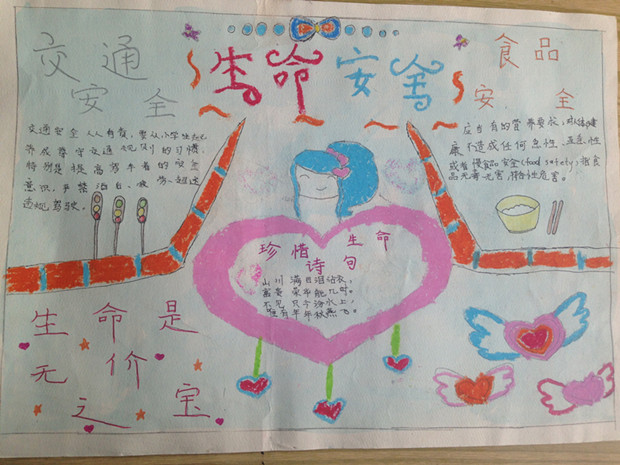 生命安全
交通
安全
交通安全 人人有责,要从小学生
养成遵守交通规则的习惯,
特别是提高驾车者的安全
意识,严禁酒后、疲劳、超速
违规驾驶。
食品
安全
应当有的营养要求,对人体健
康不造成任何急性、亚急性
或者慢食品安全(food safety)指食
品无毒无害,符合性危害。
珍惜生命
诗句
山川满目泪沾衣,
富贵荣华能几时。
不见只今汾水上,
唯有年年秋燕飞。
生命是
无价
之宝